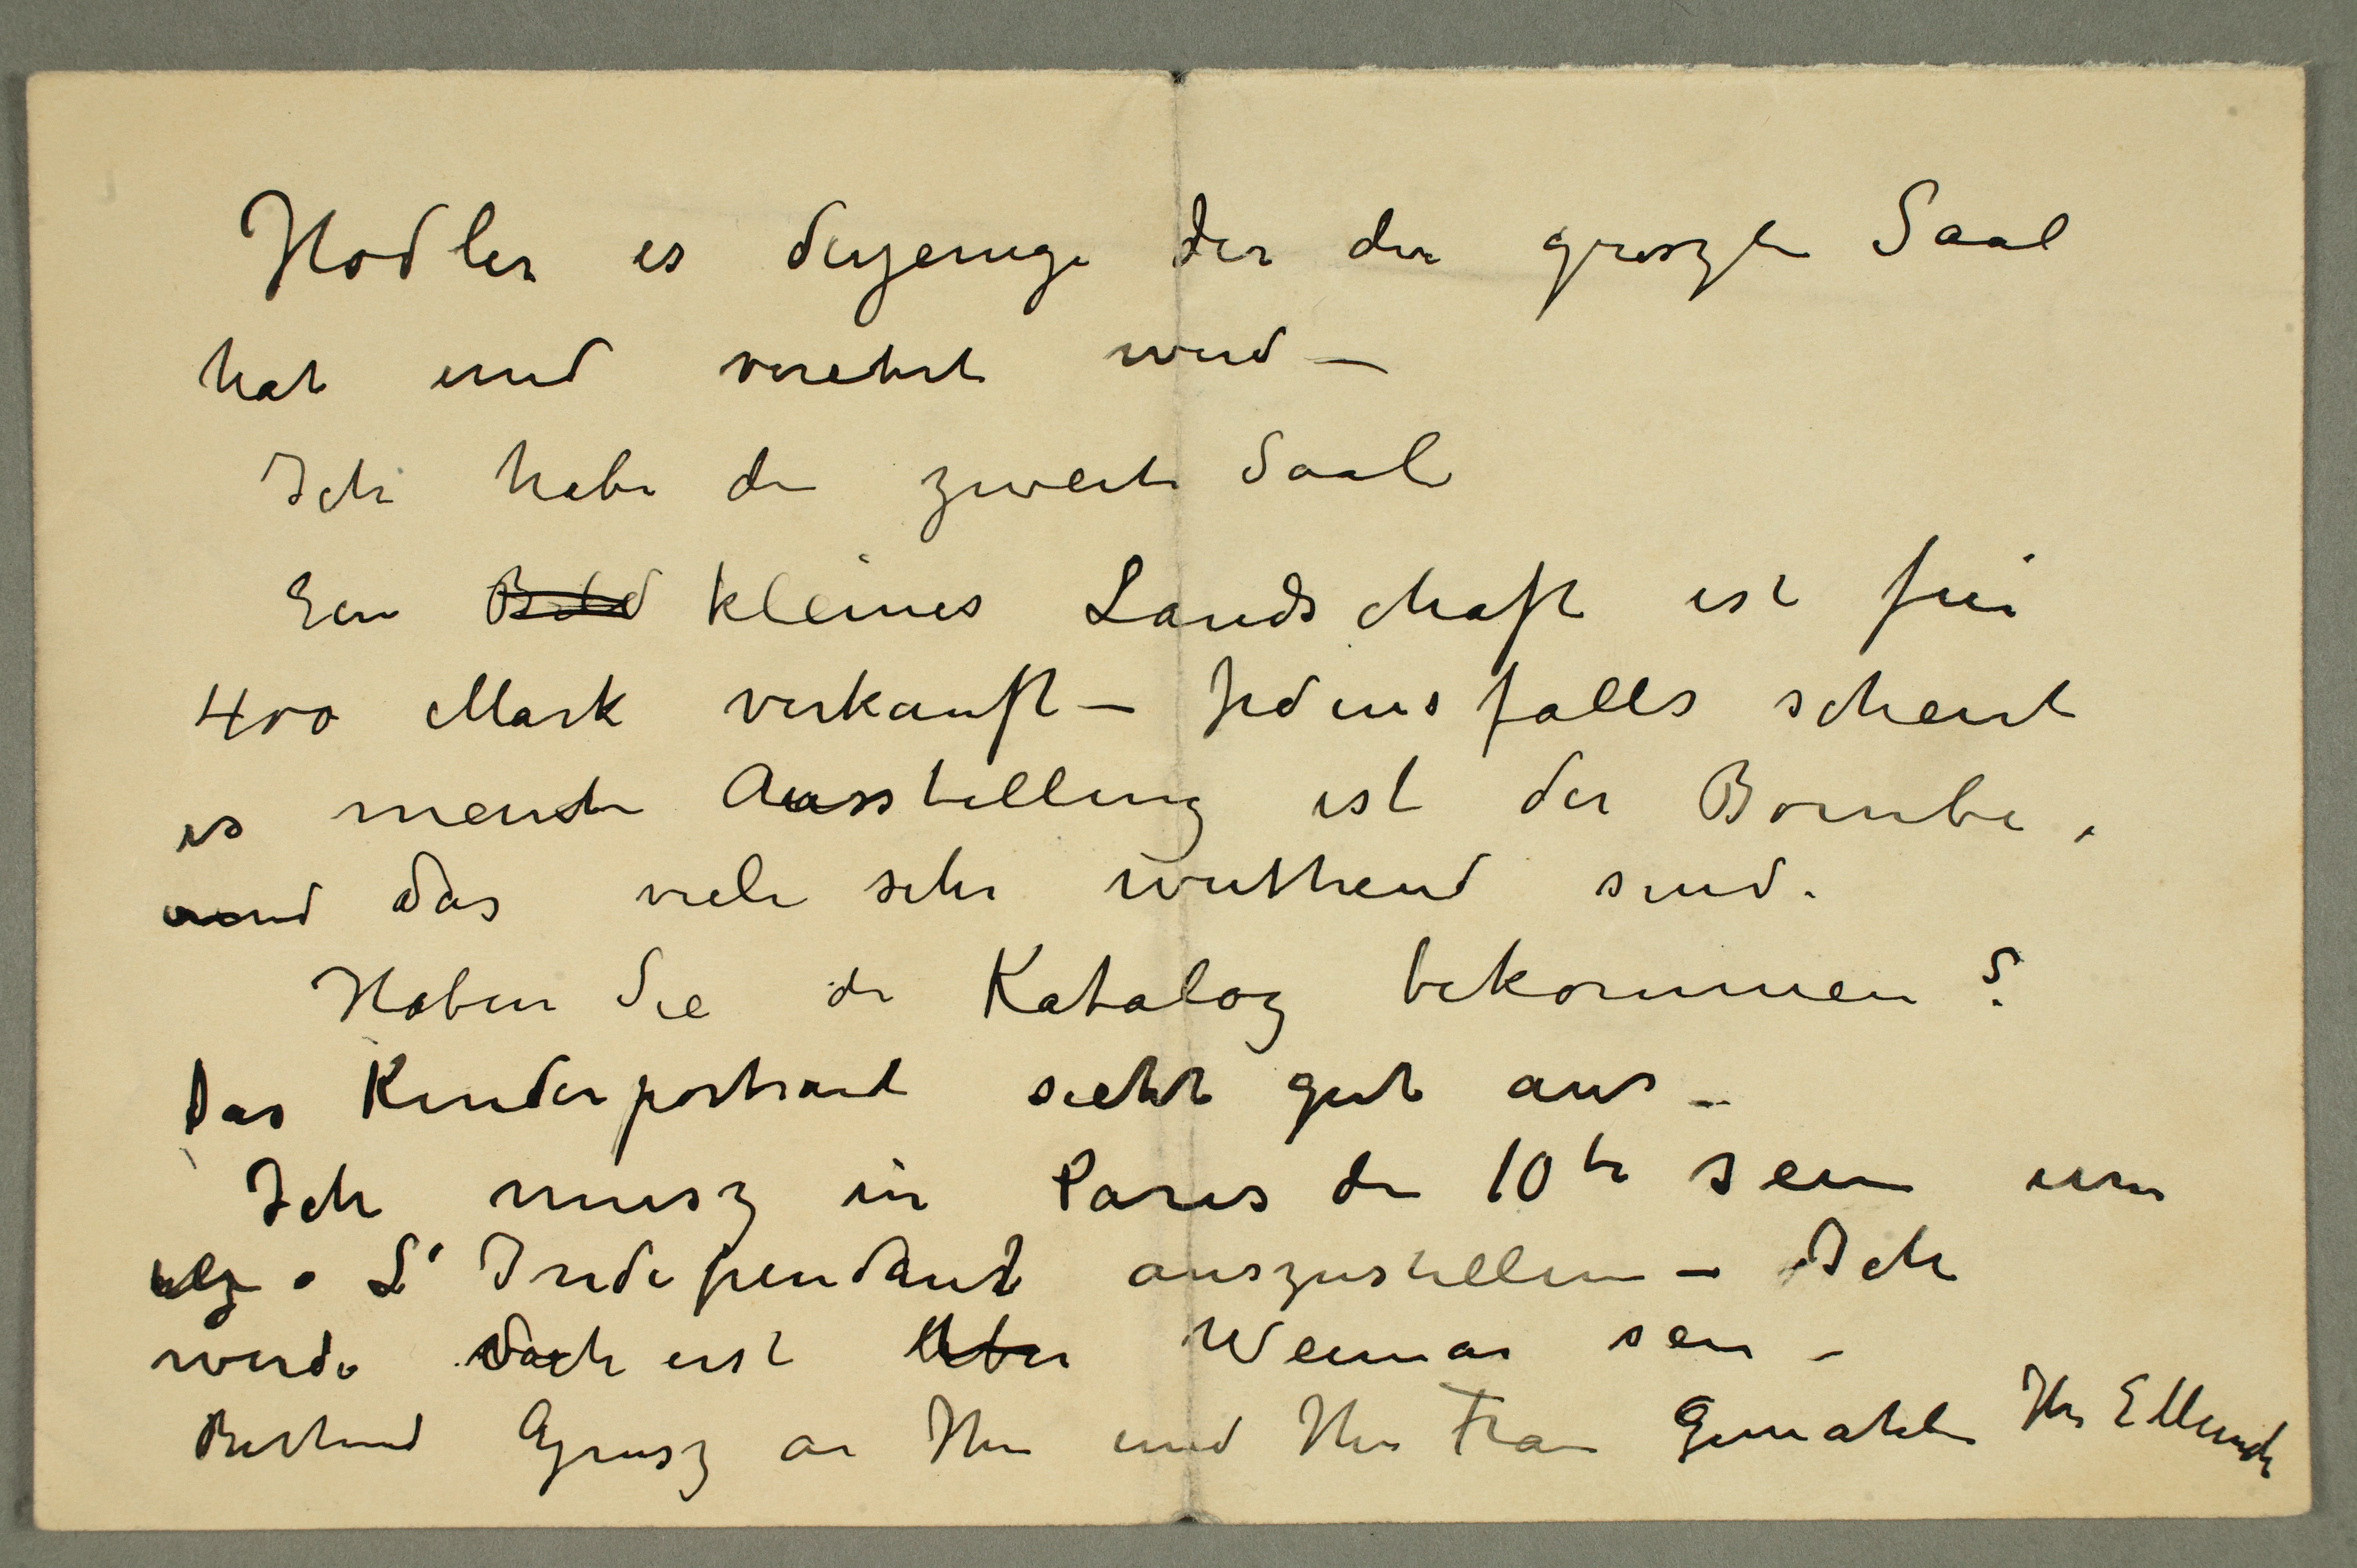 Hodler es derjenige der den groszte Saal
hat und verehrt wird –
Ich habe den zweite Saal
Ein Bild kleines Landschaft ist für
400 Mark verkauft – Jedensfalls scheint
es meine Ausstellung ist der Bombe,
und das viele sehr wuthend sind.
Haben Sie den Katalog bekommen?
Das Kinderportrait sieht gut aus –
Ich musz in Paris den 10te sein um
L'Independant auszustellen – Ich
werde doch erst Weimar sein –
Bestend Grusz an Ihn und Ihr Frau Gemahlin Ihr E Munch